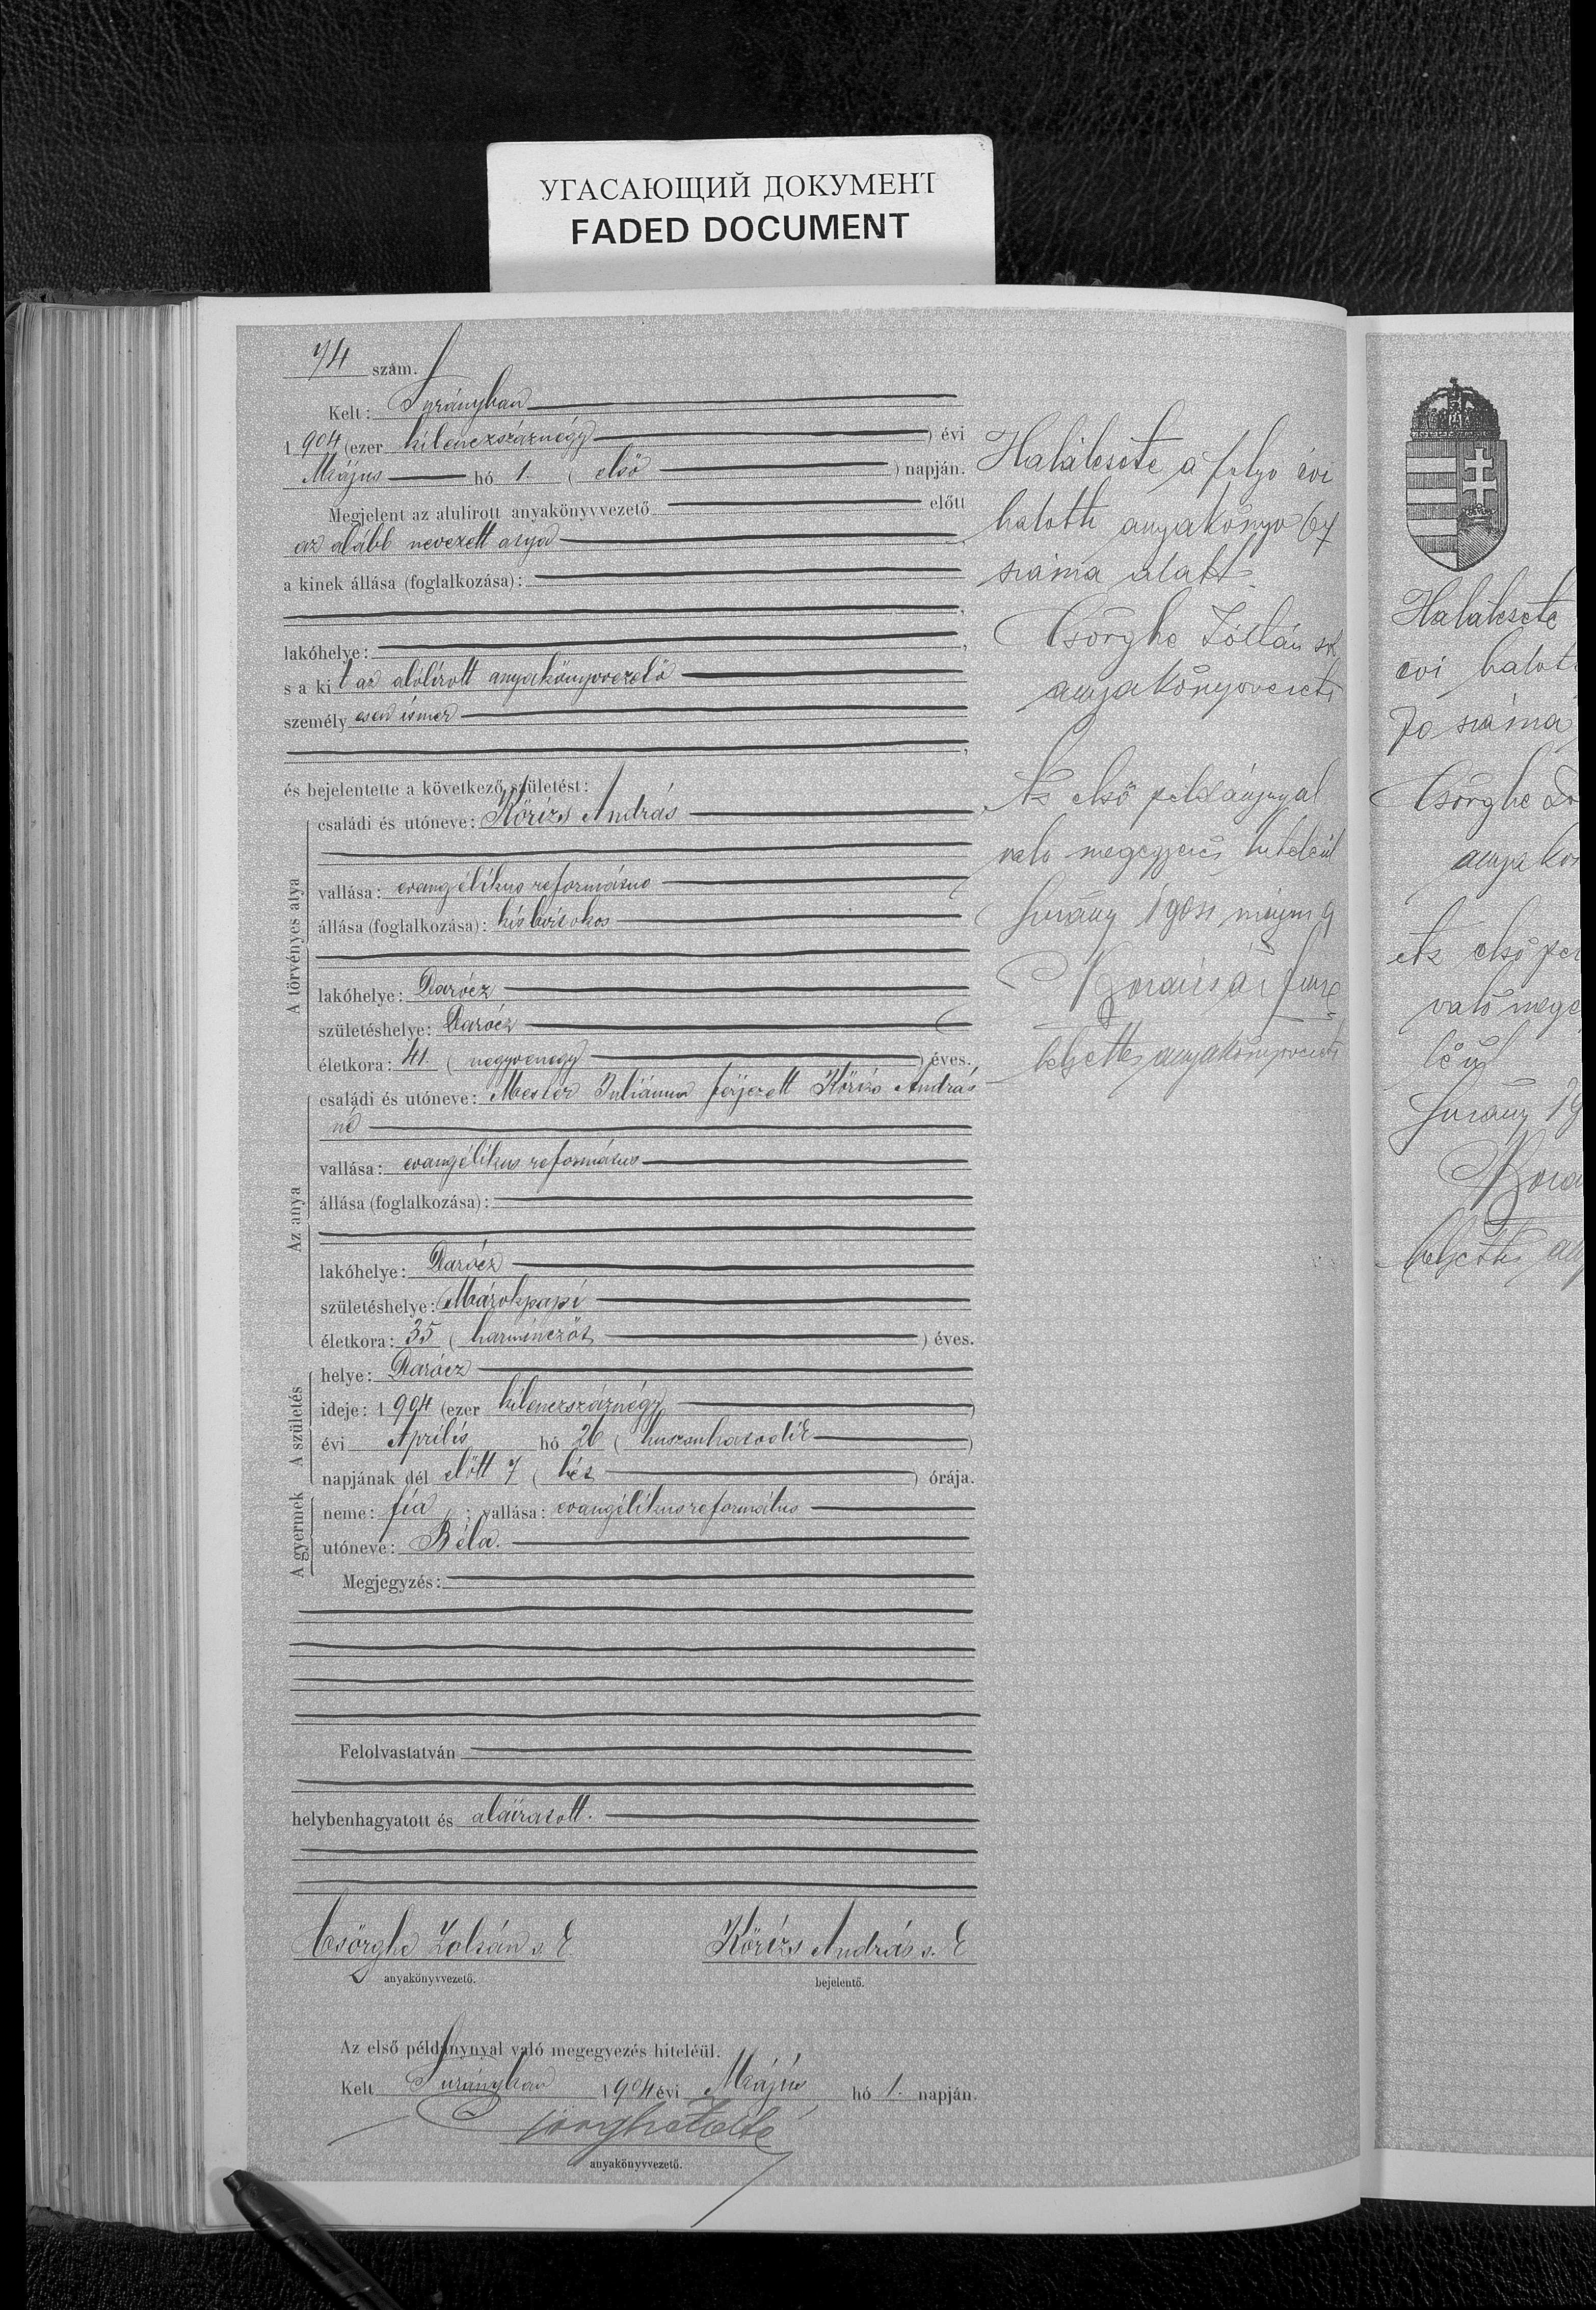 УГАСАЮЩИЙ ДОКУМЕНТ
FADED DOCUMENT
74 szám.
Kelt: Surányban
1904 (ezer kilenczszáznégy) évi
Május hó 1. (első) napján.
Megjelent az alulírott anyakönyvvezető előtt
az alább nevezett atya
a kinek állása (foglalkozása):
lakóhelye:
s a kit az alólírott anyakönyvvezető
személyesen ismer
és bejelentette a következő születést:
A törvényes atya
családi és utóneve: Körizs András
vallása: evangélikus református
állása (foglalkozása): kisbirtokos
lakóhelye: Darócz
születéshelye: Darócz
életkora: 41. (negyvenegy) éves.
Az anya
családi és utóneve: Mester Juliánna férjezett Körizs András
né
vallása: evangélikus református
állása (foglalkozása):
lakóhelye: Darócz
születéshelye: Márokpapi
életkora: 35 (harminczöt) éves.
A születés
helye: Darócz
ideje: 1904 (ezer kilenczszáznégy)
évi Április hó 26 (huszonhatodik)
napjának dél előtt 7 (hét) órája.
A gyermek
neme: fiú; vallása: evangélikus református
utóneve: Béla.
Megjegyzés:
Felolvastatván
helybenhagyatott és aláíratott.
Csörghe Zoltán s. k
anyakönyvvezető.
Körizs András s. k
bejelentő.
Az első példánynyal való megegyezés hiteléül.
Kelt Surányban 1904 évi Május hó 1. napján.
anyakönyvvezető.
Halálesete a folyo évi
halotti anyakönyv 67
száma alatt.
Csörghe Zoltán sk
anyakönyvvezető
Az első példánynyal
való megegyezés hiteléül
Surány 1904 május 9
helyettes anyakönyvvezető
Halálesete
évi halot
70 száma
Csörghe Zo
anyakön
Az első pél
való mege
léül
Surány 19
helyettes any